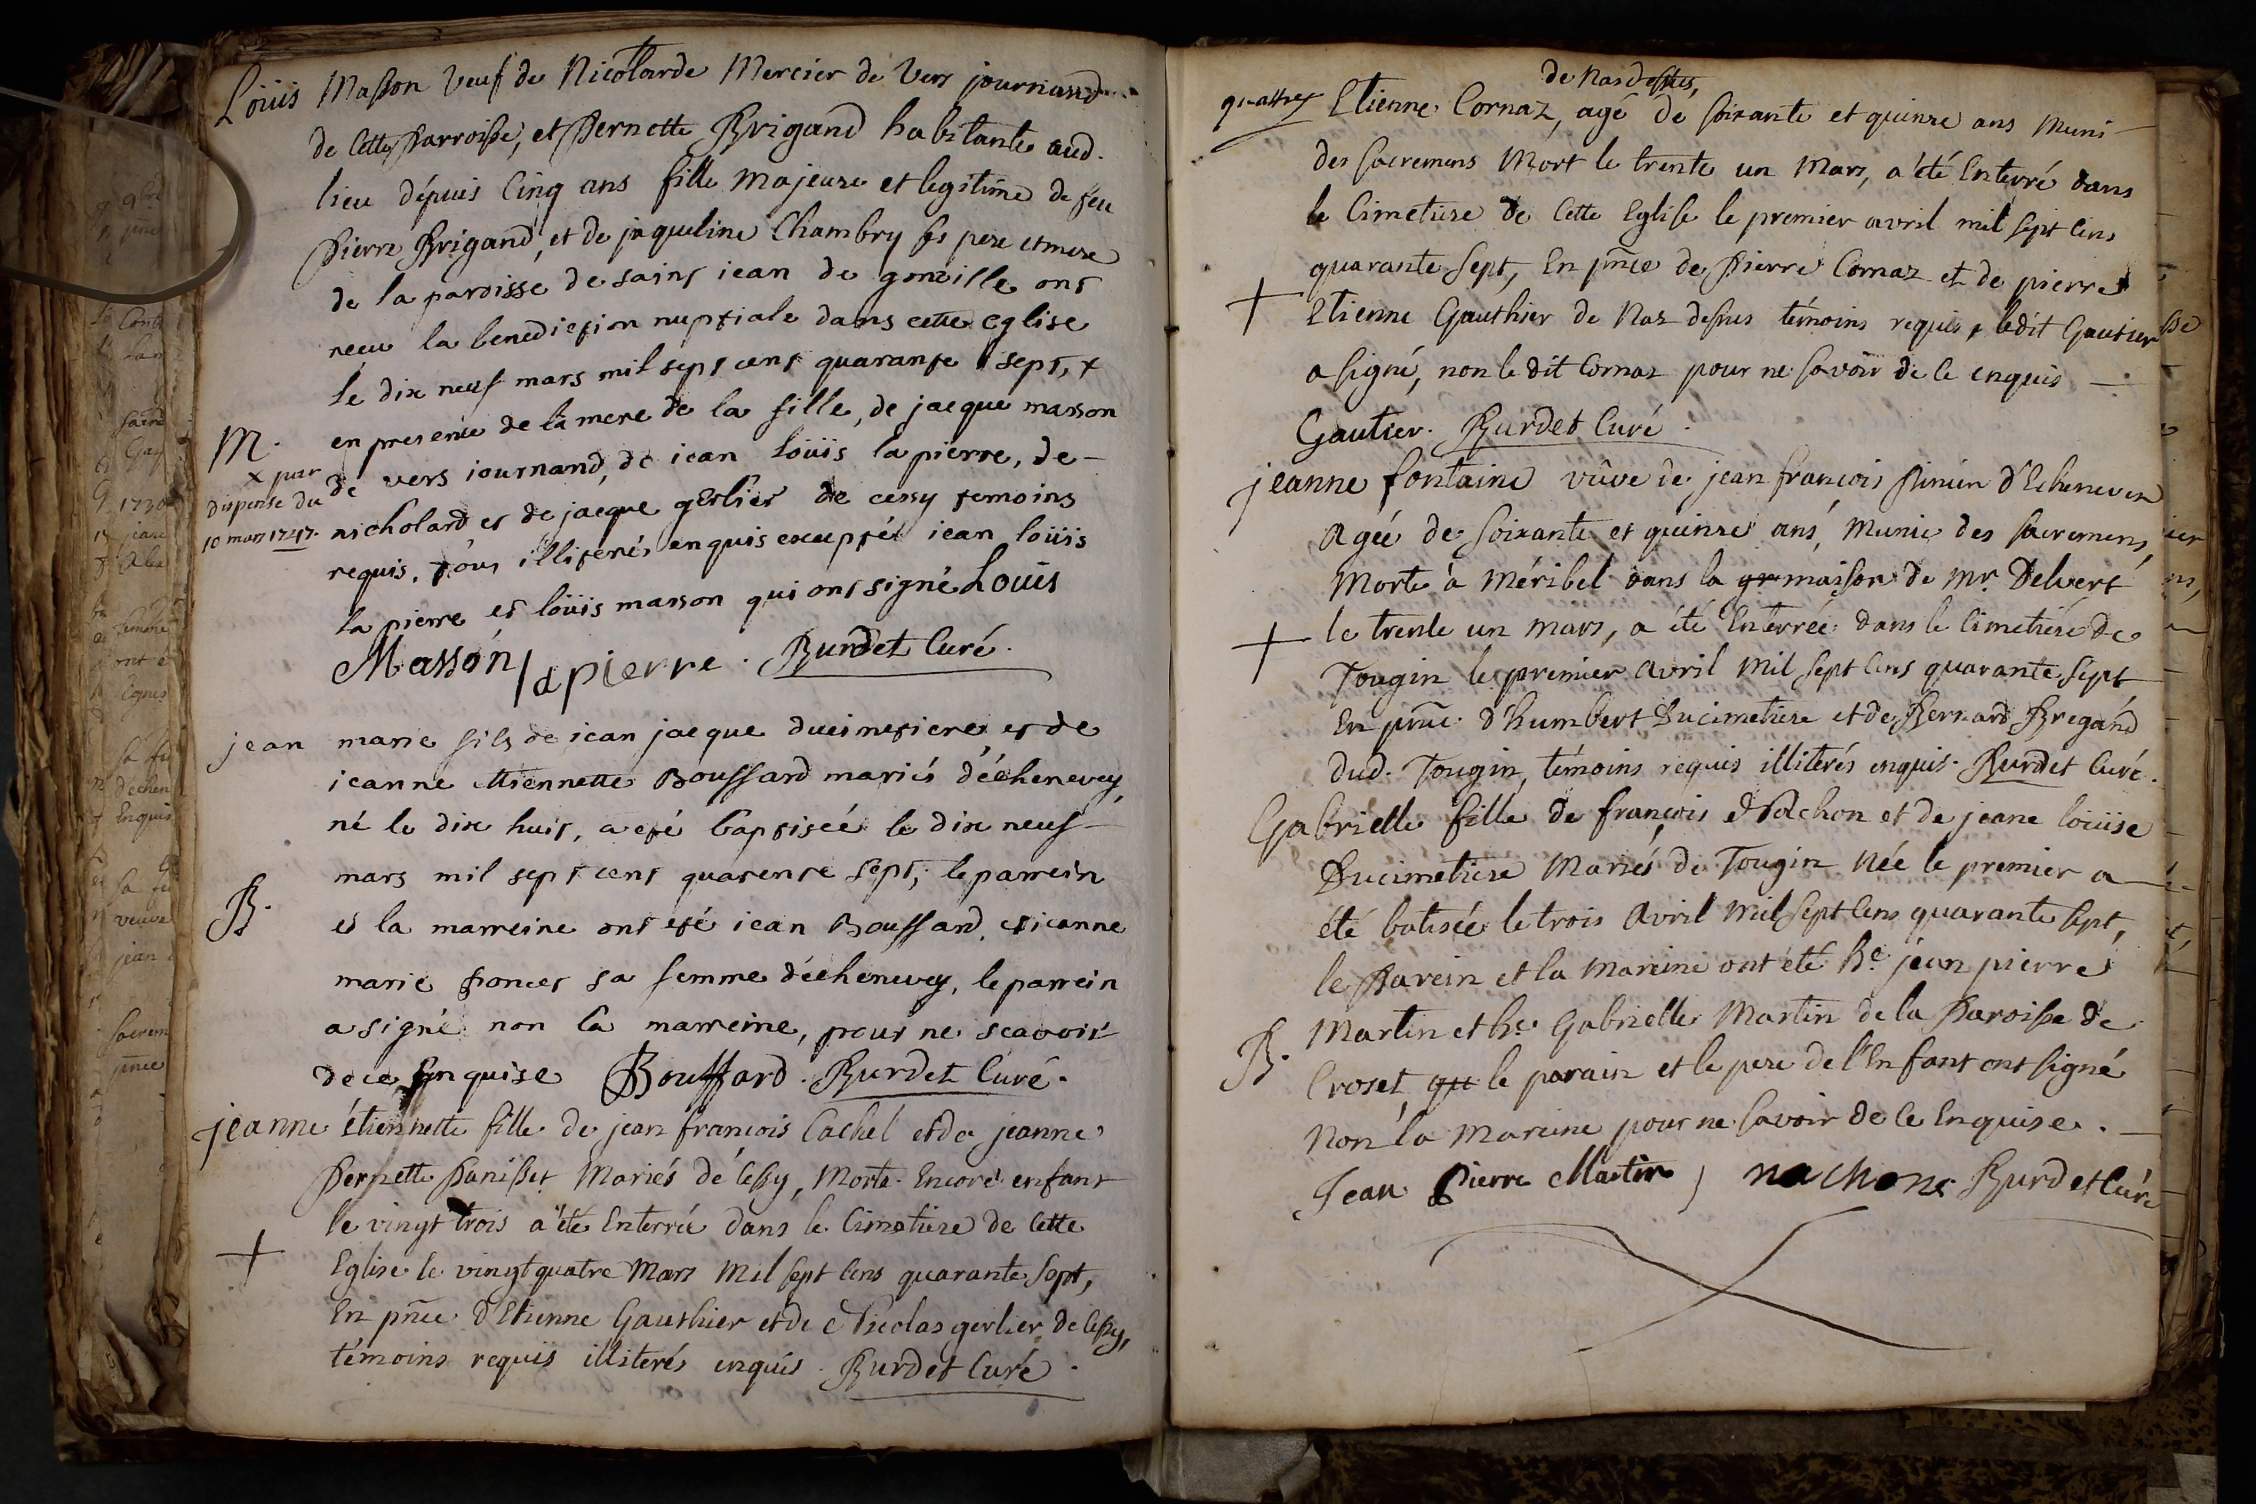 Loüis Masson Veuf de Nicolarde Mercier de Vers journand
de Cette Parroisse, et Pernette Brigand habitante aud.
lieu dépuis Cinq ans fille majeure et legitime de feu
Pierre Brigand, et de jaqueline Chambry ses pere et mere
de la paroisse de saint jean de gonville ont
recu la benediction nuptiale dans cette eglise
le dix neuf mars mil sept cent quarante sept, x
en presence de la mere de la fille, de jacque masson
M.
x par
dispense du
10 mars 1747.
de vers iournand, de iean loüis la pierre, de
nicholard et de jacque gerlier de cessy temoins
requis, tous illiterés enquis excepté iean loüis
la pierre et loüis masson qui ont signé Louis
Masson / la pierre . Burdet Curé.
jean marie fils de iean jacque ducimetiere et de
ieanne etiennette Bouffard mariés d'échenevey,
né le dix huit, a eté baptiseé le dix neuf
mars mil sept cent quarente sept, le parrein
B.
et la marreine ont eté iean Bouffard, et ieanne
marie poncet sa femme d'échenevey, le parrein
a signé non la marreine, pour ne scavoir
de ce enquise Bouffard . Burdet Curé.
jeanne étiennette fille de jean francois Cachel et de jeanne
Pernette Panisset Mariés de Cessy, Morte Encore enfant
le vingt trois a été Enterrée dans le Cimetiere de Cette
+
Eglise le vingt quatre Mars Mil sept Cens quarante sept,
En pnce d'Etienne Gauthier et de Nicolas gerlier de Cessy,
témoins requis illiterés enquis . Burdet Curé .
de Nas dessus,
Etienne Cornaz, agé de soixante et quinze ans Muni
des sacremens Mort le trente un Mars, a été Enterré dans
le Cimetiere de Cette Eglise le premier avril mil sept Cens
quarante sept, En pnce de Pierre Cornaz et de pierre
+
Etienne Gauthier de Naz dessus témoins requis, ledit Gautier
a signé, non le dit Cornaz pour ne savoir de Ce enquis
Gautier . Burdet Curé .
jeanne fontaine vûve de jean francois d'Echeneven
Agée de soixante et quinze ans, Munie des sacremens,
Morte à Méribel dans la maison de Mr. Delvert
+
le trente un mars, a été Enterrée dans le Cimetiére de
Tougin le premier Avril Mil sept Cens quarante sept
En pnce d'humbert Ducimetiere et de Bernard Bregand
dud. Tougin, témoins requis illiterés enquis . Burdet Curé .
Gabrielle fille de françois Nachon et de jeane loüise
Ducimetiere Mariés de Tougin Née le premier a
été batisée le trois Avril Mil sept Cens quarante sept,
le Parein et la Mareine ont été he. jean pierre
B.
Martin et he. Gabrielle Martin de la Paroisse de
Croset, qu le parain et le pere de l'Enfant ont signé
Non la Mareine pour ne savoir de Ce Enquise .
Jean Pierre Martin / nachon Burdet Curé